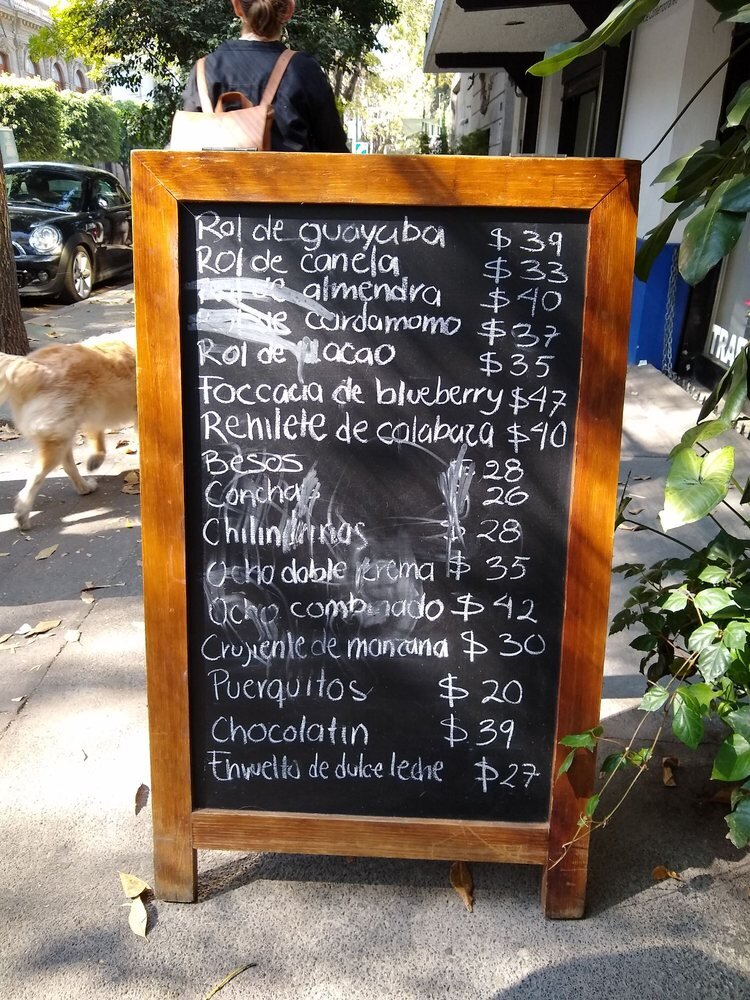 Rol de guayaba $39
Rol de canela $33
almendra $40
cardamomo $37
Rol de cacao $35
Foccacia de blueberry $47
Rehilete de calabaza $40
Besos $ 28
Conchas 26
Chilindrinas $ 28
Ocho doble crema $ 35
Ocho combinado $ 42
Crujiente de manzana $ 30
Puerquitos $ 20
Chocolatin $39
Envuelto de dulce leche $27